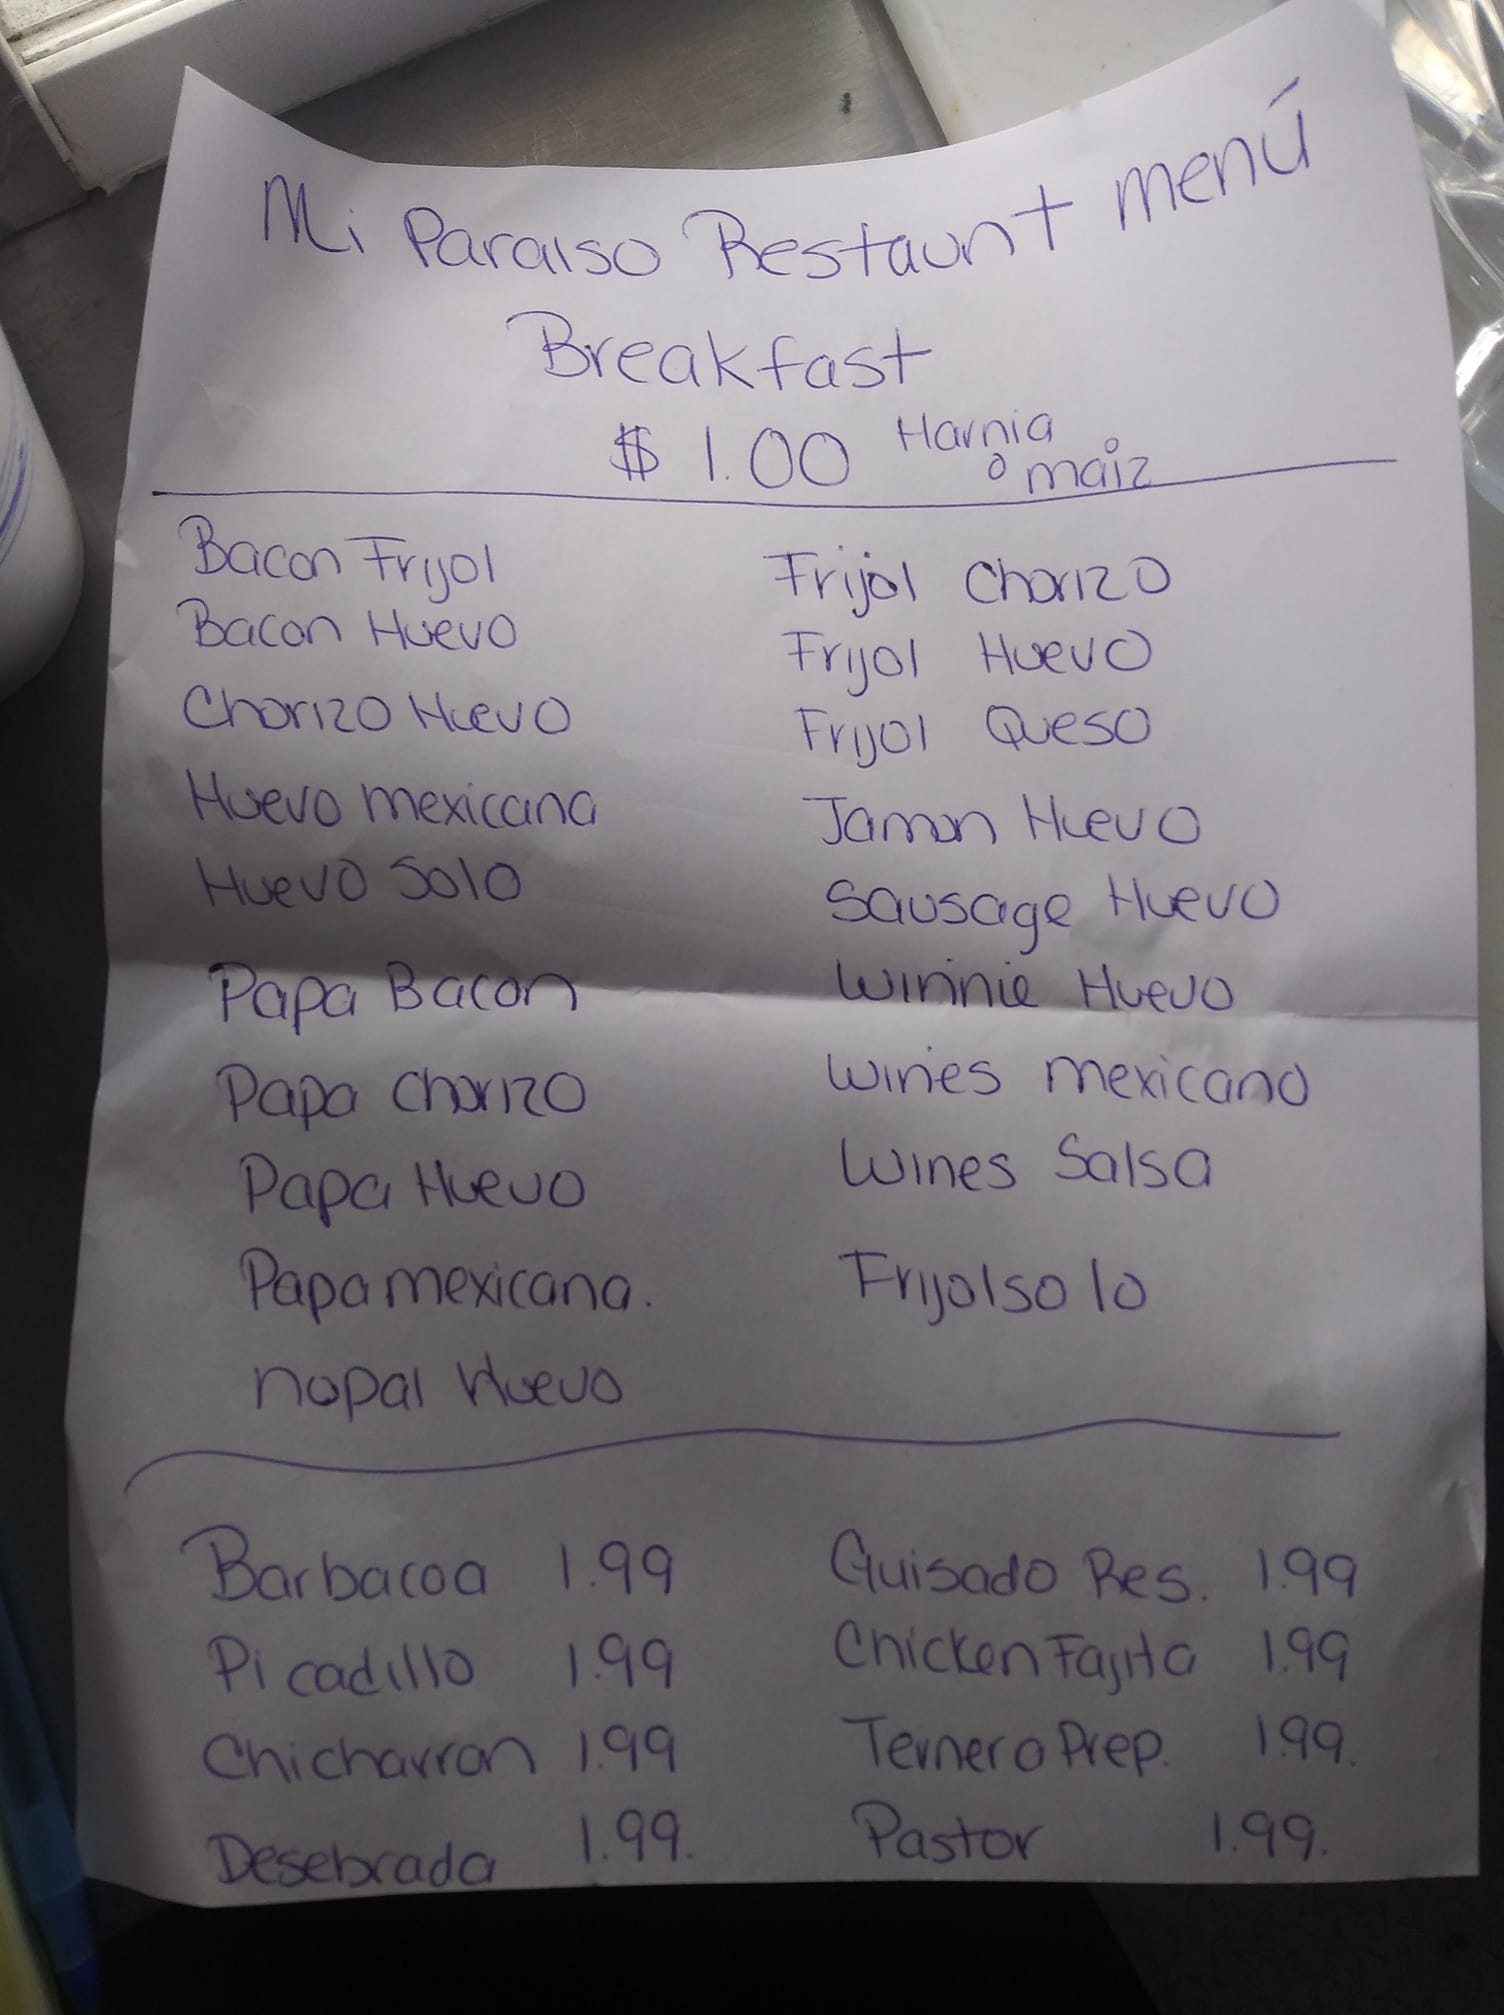 Mi Paraiso Restaunt menú
Breakfast
$ 1.00 Harnia
o maiz
Bacon Frijol
Bacon Huevo
Chorizo Huevo
Huevo mexicana
Huevo Solo
Papa Bacon
Papa Chorizo
Papa Huevo
Papa mexicana.
nopal Huevo
Frijol Chorizo
Frijol Huevo
Frijol Queso
Jamon Huevo
Sausage Huevo
Winnie Huevo
Wines mexicano
Wines Salsa
Frijol solo
Barbacoa 1.99
Picadillo 1.99
Chicharron 1.99
Desebrada 1.99.
Guisado Res. 1.99
Chicken Fajita 1.99
Ternera Prep. 1.99.
Pastor 1.99.